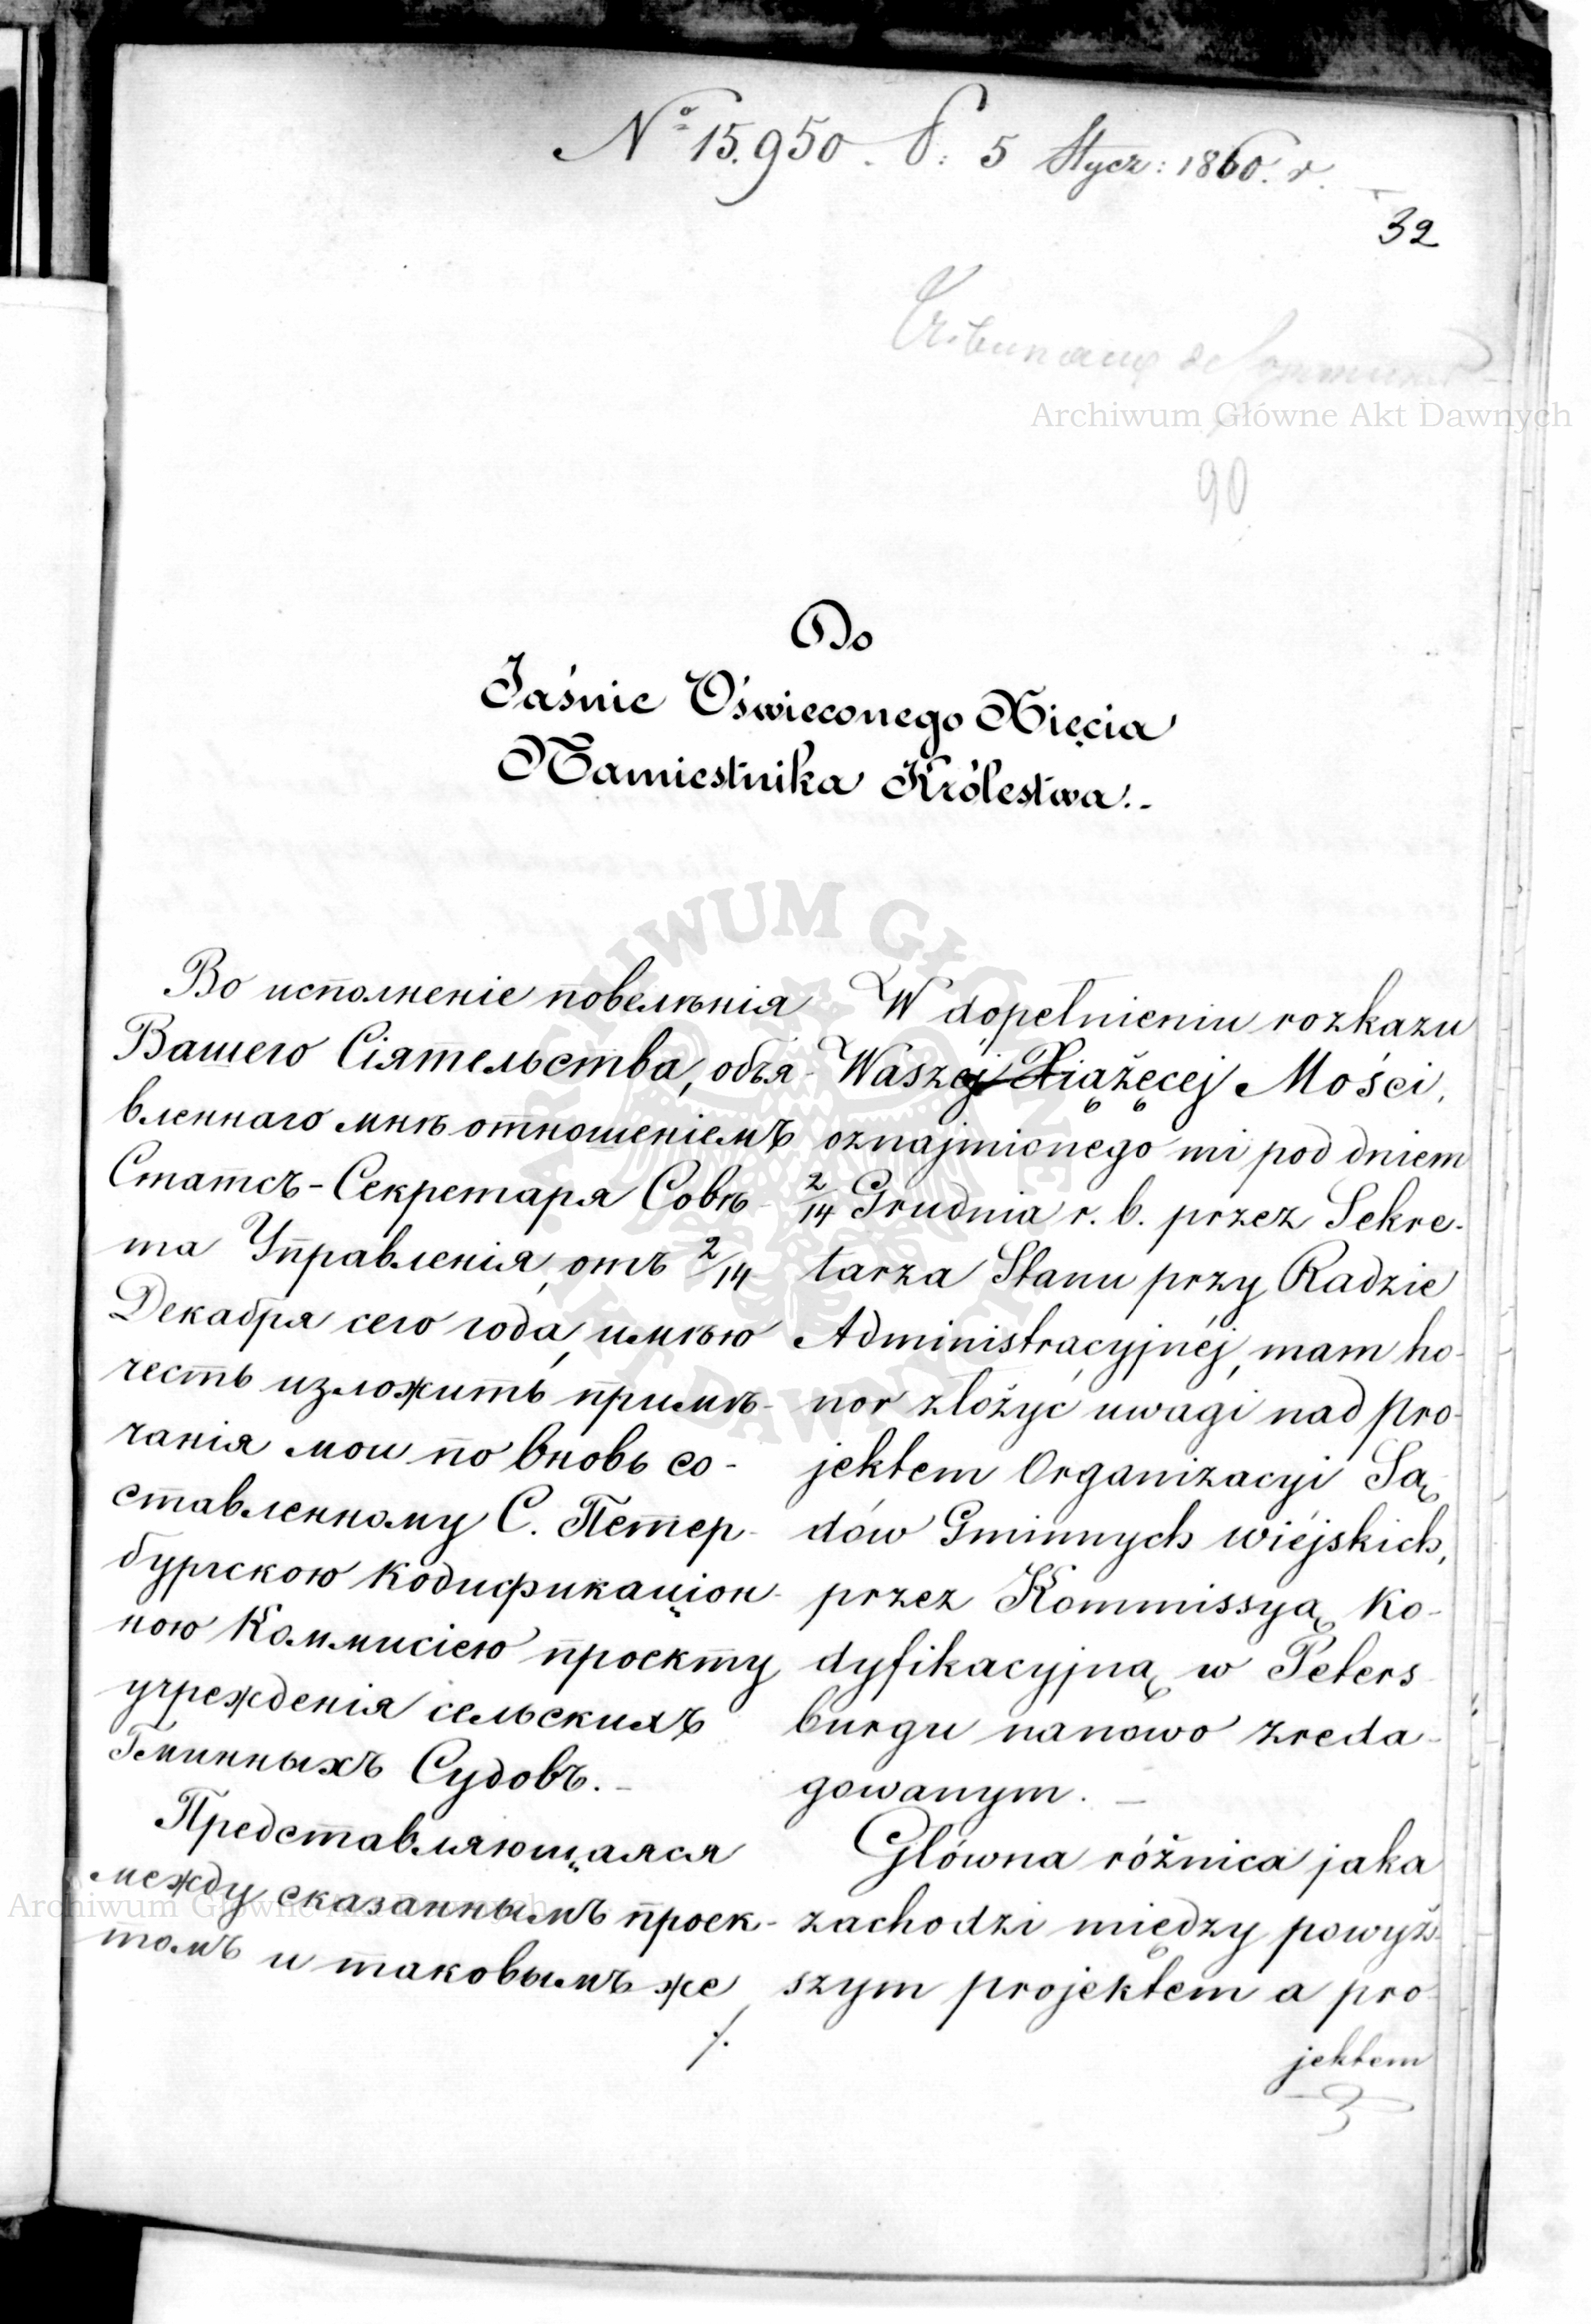 № 15.950. S: 5 Stycz: 1860. r.
32
Tribunaux de
Archiwum Główne Akt Dawnych
90
Do
Jaśnie Oświeconego Xięcia
Namiestnika Królestwa.-
Во исполненіе повелѣнія
Вашего Сіятельства, объя-
вленнаго мнѣ отношеніемъ
Статсъ-Секретаря Совѣ-
та Управленія, отъ 2/14
Декабря сего года, имѣю
честь изложить примѣ-
чанія мои по вновь со-
ставленному С. Петер-
бургскою Кодификаціон-
ною Коммисіею проекту
учрежденія сельскихъ
Гминныхъ Судовъ.-
Представляющаяся
между сказаннымъ проек-
томъ и таковымъ же
./.
W dopełnieniu rozkazu
Waszéj Xiążęcej Mości,
oznajmionego mi pod dniem
2/14 Grudnia r. b. przez Sekre-
tarza Stanu przy Radzie
Administracyjnéj, mam ho-
nor złożyć uwagi nad pro-
jektem Organizacyi Są-
dów Gminnych wiéjskich,
przez Kommissyą Ko-
dyfikacyjną w Peters-
burgu nanowo zreda-
gowanym. —
Główna różnica jaka
zachodzi między powyż-
szym projektem a pro-
jektem
ARCHIWUM GŁÓWNE AKT DAWNYCH
Archiwum Główne Akt Dawnych